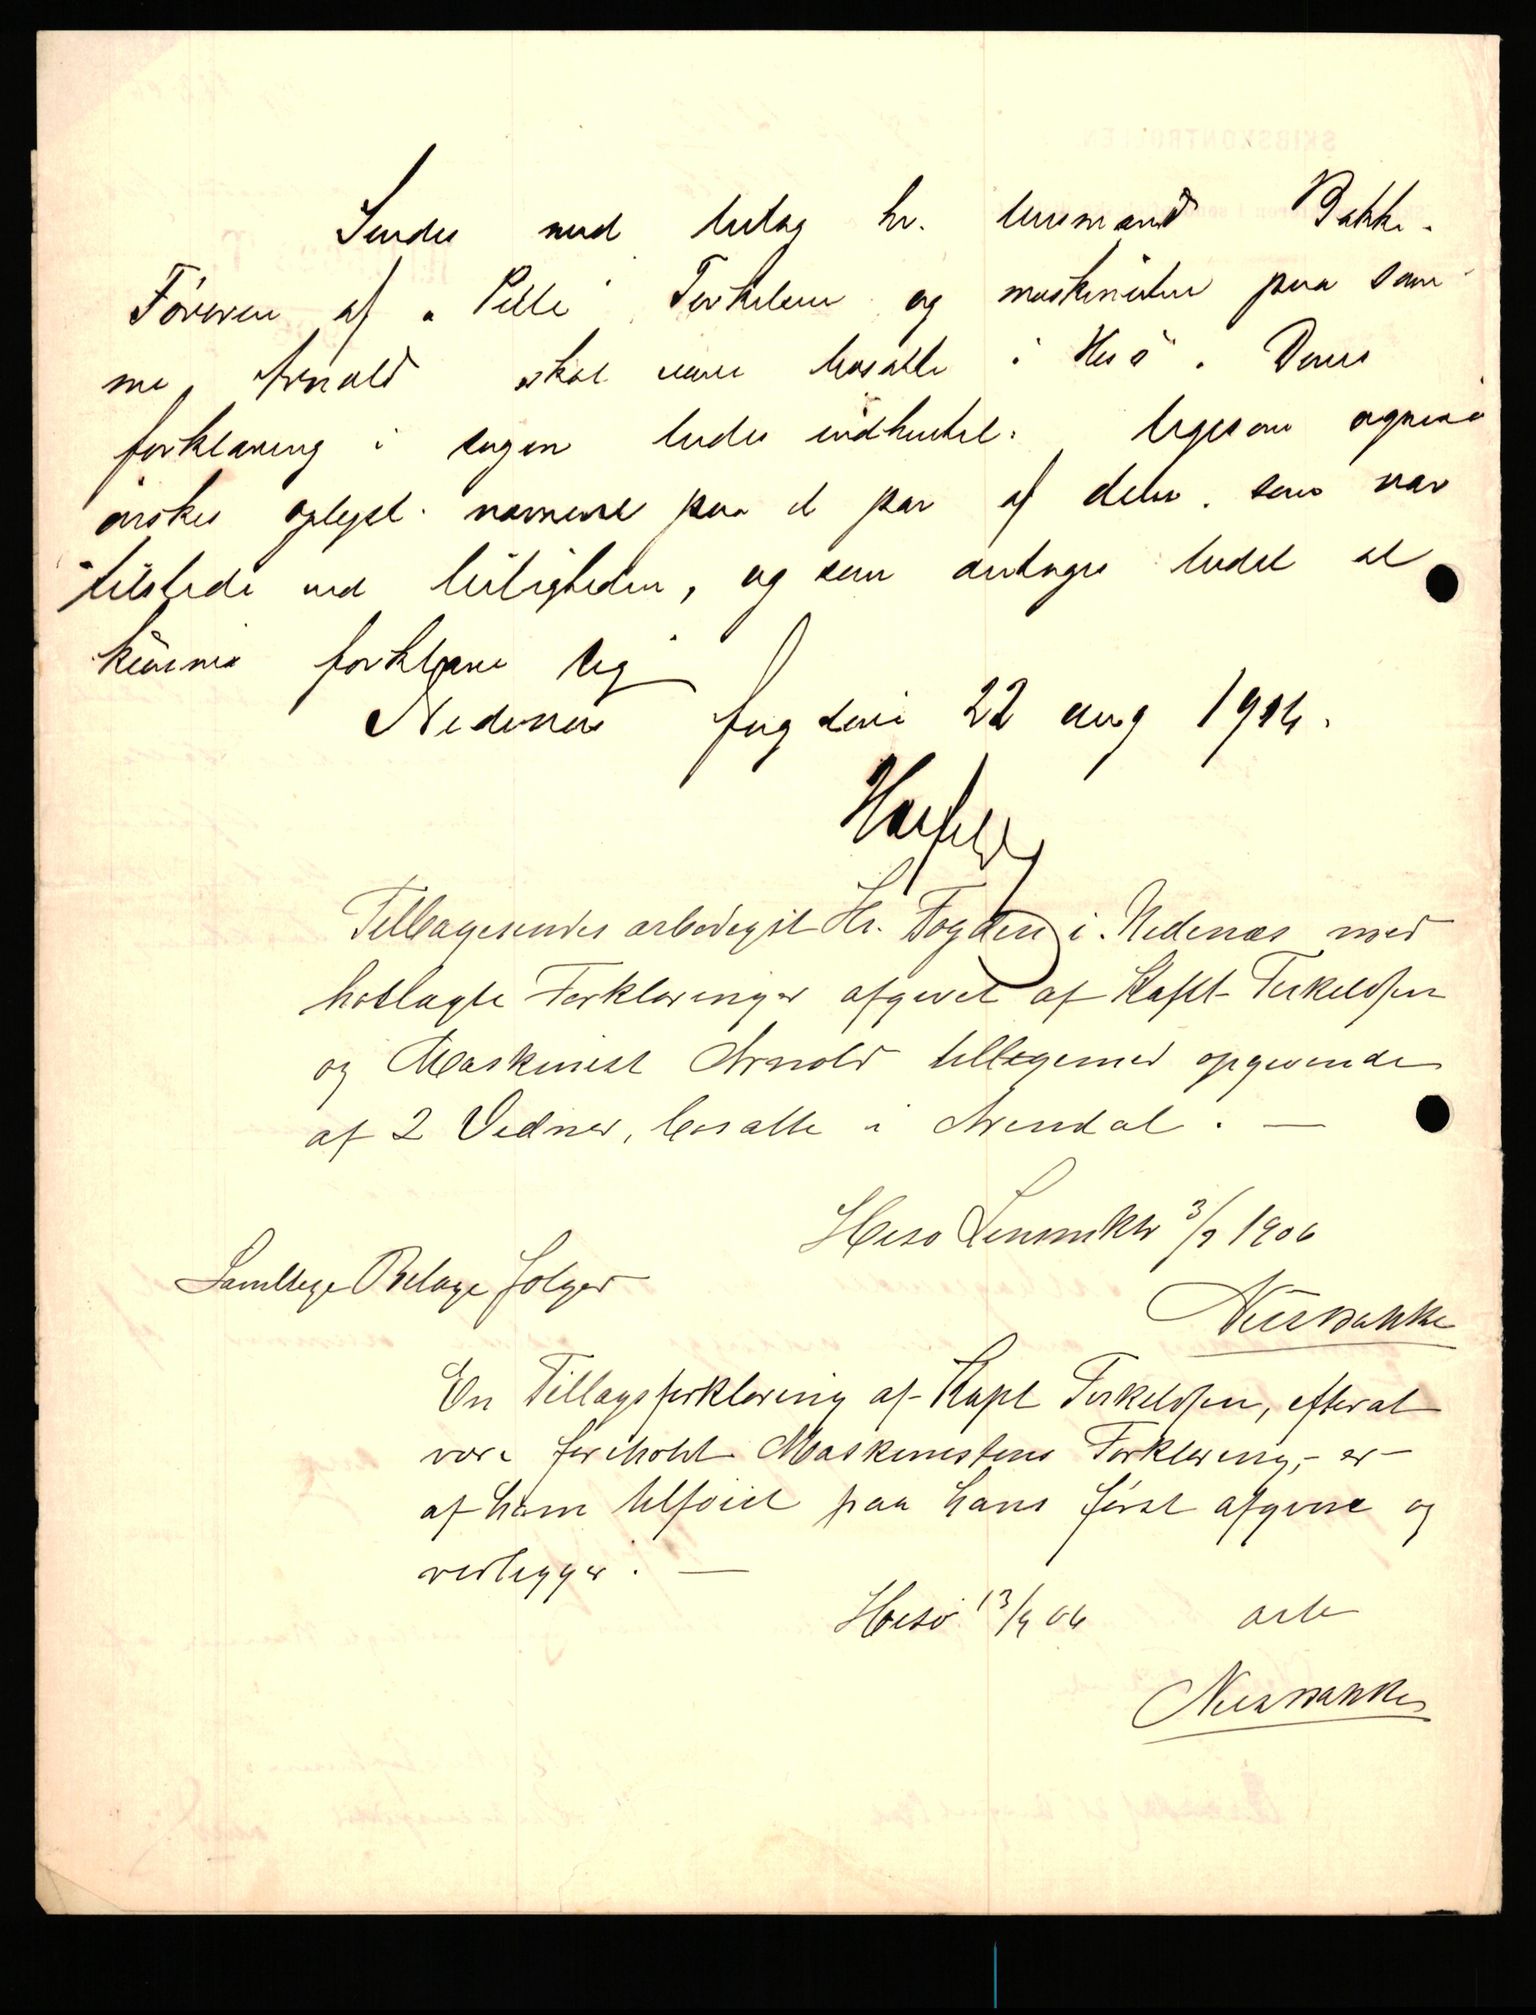 Sendes med bilag hr. lensmand Bakke.
Föreren af "Pelle" Terkelsen og maskinisten paa sam
me, Arnold skal være bosatte i Hisö. Deres
forklaring i sagen bedes indhentet. ligesom ogsaa
önskes oplyst navnene paa et par af dem, som var
tilstede ved leiligheden, og som antages bedst at
kunne forklare sig
Nedenes fogderi 22 aug 1906.
Tilbagesendes ærbödigst Hr. Fogden i Nedenæs med
hoslagte Forklaringer afgivet af Kapt. Terkelsen
og Maskinist Arnold tilligemed opgivende
af 2 Vidner, bosatte i Arendal. —
Hisö Lensmktr 3/9 1906
Samtlige Bilage fölger
Nils Bakke
En Tillægsforklaring af Kapt Terkelsen, efterat
være foreholdt Maskinistens Forklaring, - er
af ham tilföiet paa hans först afgivne og
vedlegger. —
Hisö 13/9 06 ærb
Nils Bakke